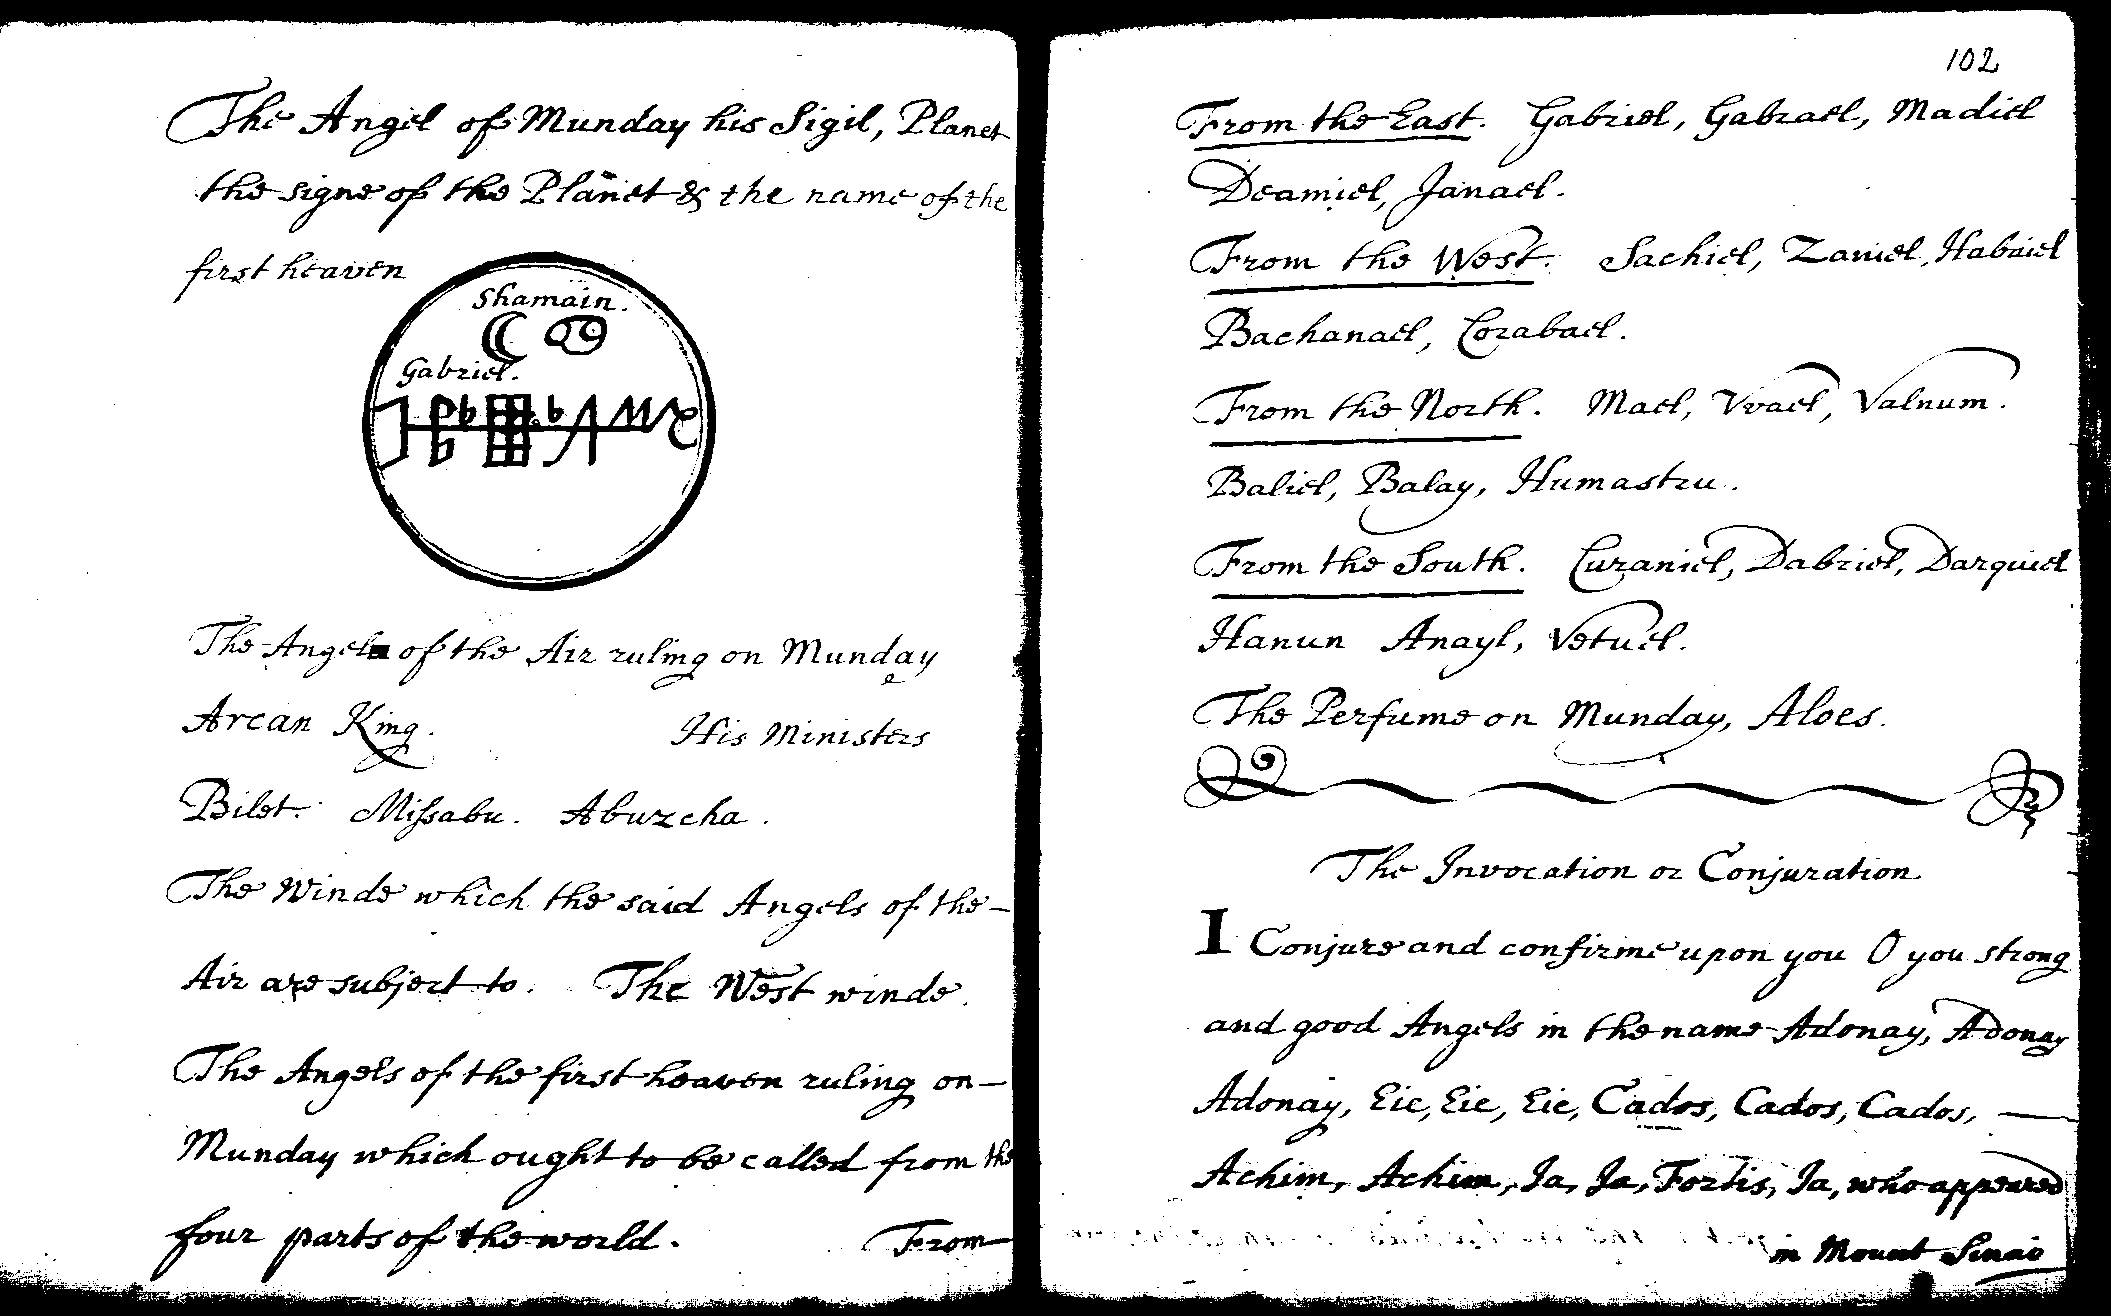 The Angel of Munday his Sigil, Planet
the signe of the Planet & the name of the
first heaven
Shamain.
Gabriel.
The Angels of the Air ruling on Munday
Arcan King. His Ministers
Bilet. Missabu. Abuzcha.
The Winde which the said Angels of the
Air are subject to. The West winde.
The Angels of the first heaven ruling on
Munday which ought to be called from the
four parts of the world. From
102
From the East. Gabriel, Gabrael, Madiel
Deamiel, Janael.
From the West. Sachiel, Zaniel, Habaiel
Bachanael, Corabael.
From the North. Mael, Vvael, Valnum.
Baliel, Balay, Humastru.
From the South. Curaniel, Dabriel, Darquiel
Hanun Anayl, Vetuel.
The Perfume on Munday, Aloes.
The Invocation or Conjuration
I Conjure and confirme upon you O you strong
and good Angels in the name Adonay, Adonay
Adonay, Eie, Eie, Eie, Cados, Cados, Cados,
Achim, Achim, Ja, Ja, Fortis, Ja, who appeared
in Mount Sinai